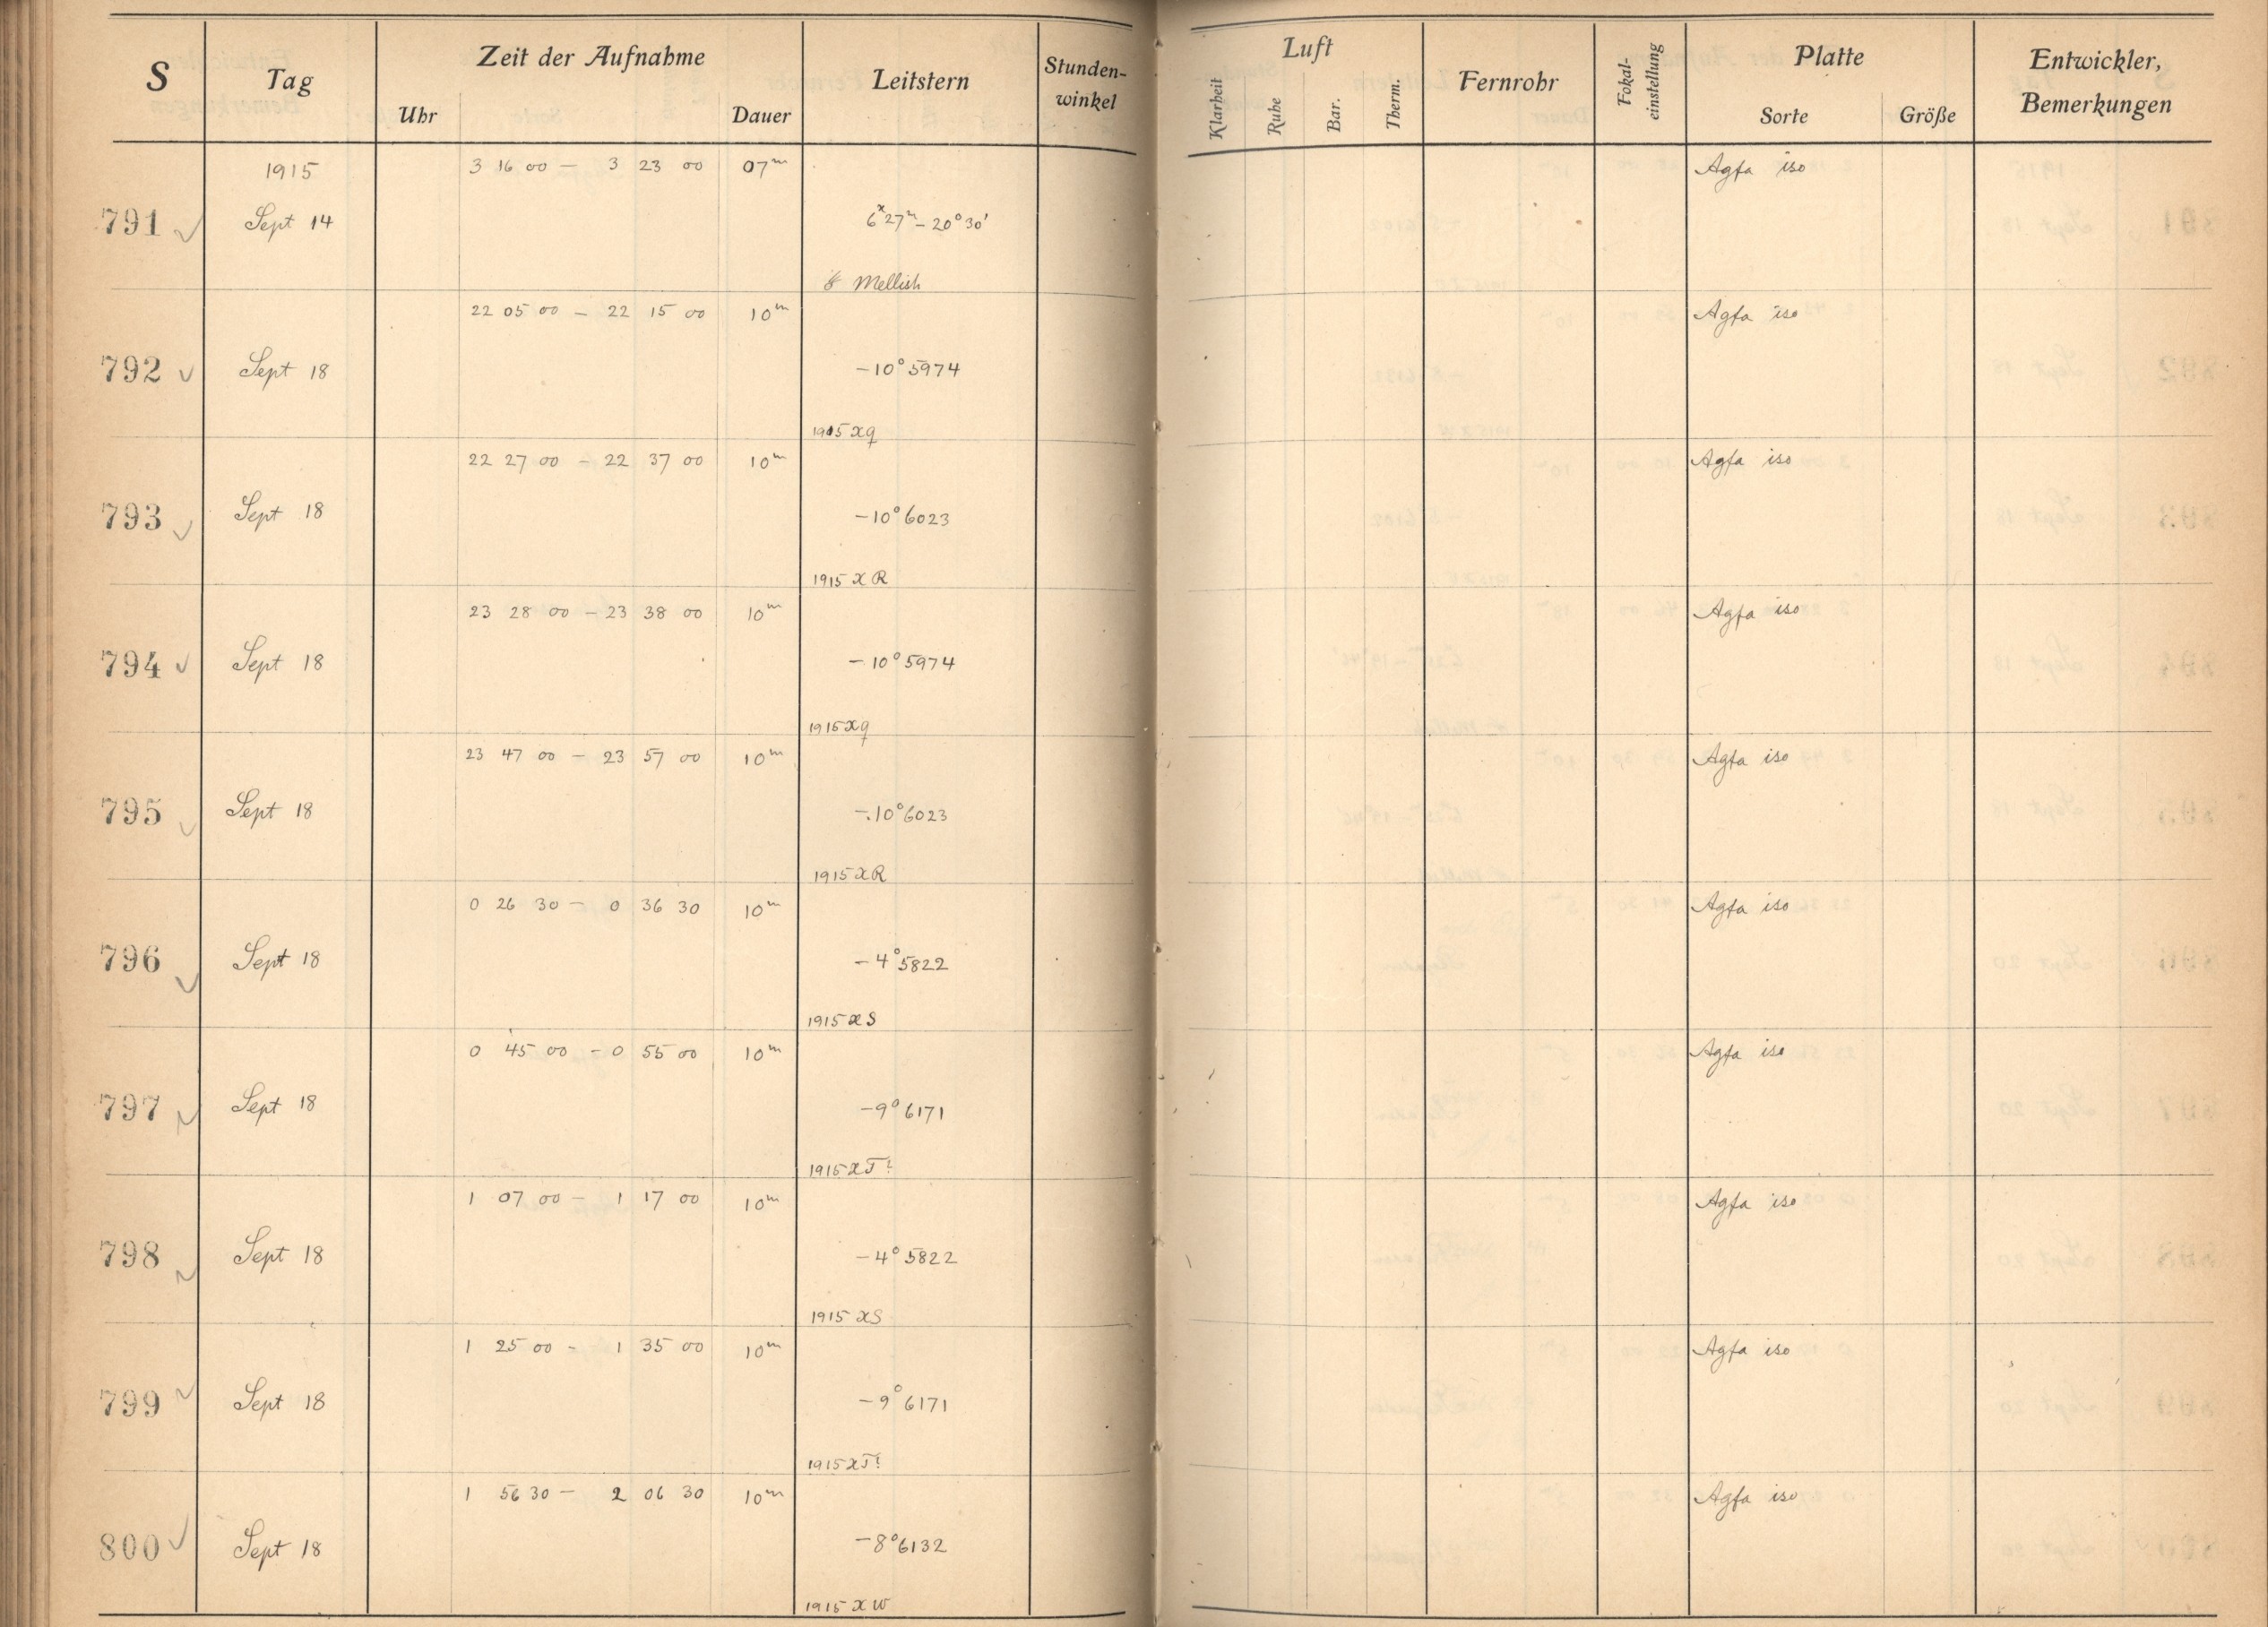 S Tag Zeit der Aufnahme Leitstern Stunden-winkel Luft Fernrohr Fokal-einstellung Platte Entwickler, Bemerkungen
Uhr Dauer Klarheit Ruhe Bar. Therm. Sorte Größe
1915 3 16 00 – 3 23 00 07m Agfa iso
791 Sept 14 6 27m – 20° 30'
Mellish
22 05 00 – 22 15 00 10m Agfa iso
792 Sept 18 –10° 5974
1915 XQ
22 27 00 – 22 37 00 10m Agfa iso
793 Sept 18 –10° 6023
1915 X R
23 28 00 – 23 38 00 10m Agfa iso
794 Sept 18 –10° 5974
1915 XQ
23 47 00 – 23 57 00 10m Agfa iso
795 Sept 18 –10° 6023
1915 XR
0 26 30 – 0 36 30 10m Agfa iso
796 Sept 18 –4° 5822
1915 XS
0 45 00 – 0 55 00 10m Agfa iso
797 Sept 18 –9° 6171
1915 XT?
1 07 00 – 1 17 00 10m Agfa iso
798 Sept 18 –4° 5822
1915 XS
1 25 00 – 1 35 00 10m Agfa iso
799 Sept 18 –9° 6171
1915 XT?
1 56 30 – 2 06 30 10m Agfa iso
800 Sept 18 –8° 6132
1915 X W